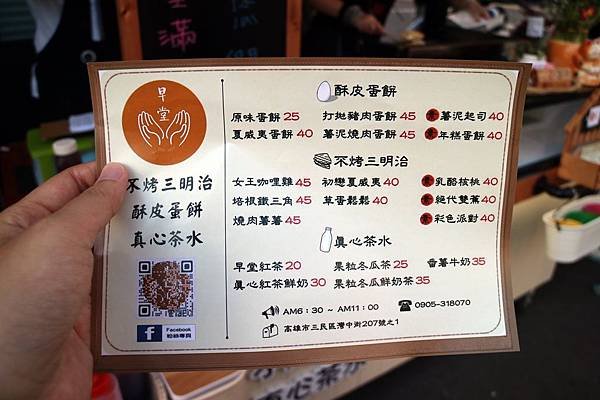 滿
早堂
不烤三明治
酥皮蛋餅
真心茶水
Facebook
粉絲專頁
酥皮蛋餅
原味蛋餅 25 打拋豬肉蛋餅 45 素 薯泥起司 40
夏威夷蛋餅 40 薯泥燒肉蛋餅 45 素 年糕蛋餅 40
不烤三明治
女王咖哩雞 45 初戀夏威夷 40 素 乳酪核桃 40
培根鐵三角 45 草蛋鬆鬆 40 素 絕代雙蕉 40
燒肉薯薯 45 素 彩色派對 40
真心茶水
早堂紅茶 20 果粒冬瓜茶 25 番薯牛奶 35
真心紅茶鮮奶 30 果粒冬瓜鮮奶茶 35
AM6：30 ~ AM11：00 0905-318070
高雄市三民區灣中街207號之1
真心茶水